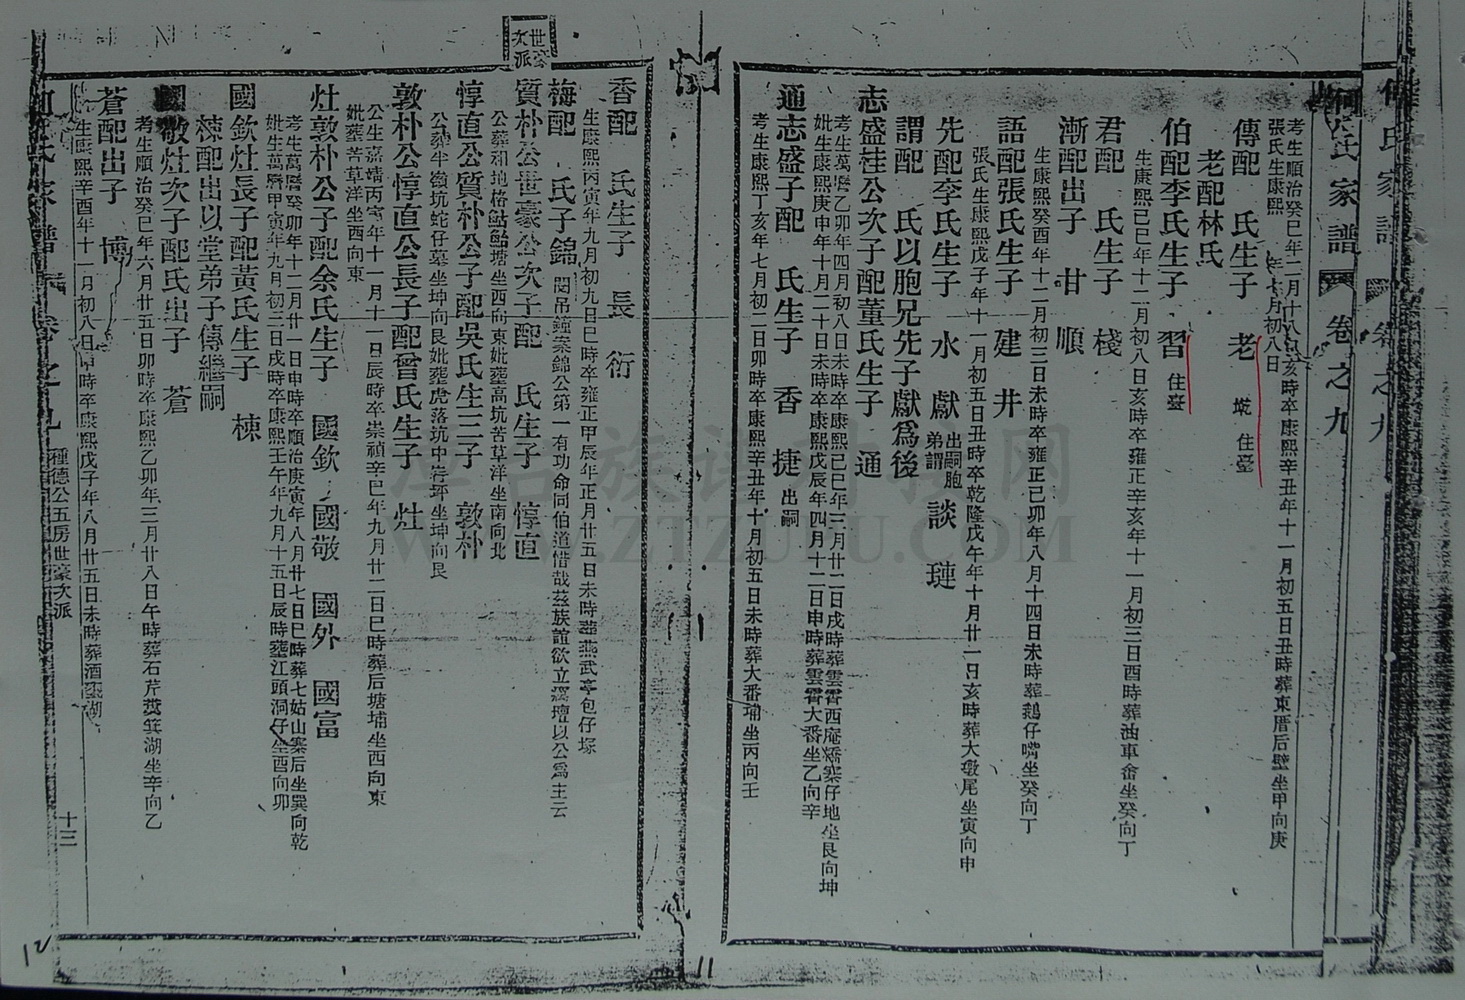 何氏家譜 卷之九
考生順治癸巳年二月十八日亥時卒康熙辛丑年十一月初五日丑時葬東厝后壁坐甲向庚
張氏生康熙 年七月初八日
傳配 氏生子 老 城 住臺
老配林氏
伯配李氏生子 習 住臺
生康熙己巳年十二月初八日亥時卒雍正辛亥年十一月初三日酉時葬油車畬坐癸向丁
君配 氏生子 棧
漸配出子 甘 順
生康熙癸酉年十二月初三日未時卒雍正己卯年八月十四日未時葬鵝仔嘴坐癸向丁
語配張氏生子 建 井
張氏生康熙戊子年十一月初五日丑時卒乾隆戊午年十月廿一日亥時葬大墩尾坐寅向申
先配李氏生子 水 獻 出嗣胞弟謂 談 璉
謂配 氏以胞兄先子獻爲後
志盛桂公次子配董氏生子 通
考生萬曆乙卯年四月初八日未時卒康熙己巳年三月廿二日戌時葬雲霄西庵矯寨仔地坐艮向坤
妣生康熙庚申年十月二十日未時卒康熙戊辰年四月十二日申時葬雲霄大番坐乙向辛
通志盛子配 氏生子 香 捷 出嗣
考生康熙丁亥年七月初二日卯時卒康熙辛丑年十月初五日未時葬大番埔坐丙向壬
11
世豪次派
香配 氏生子 長 衍
生康熙丙寅年九月初九日巳時卒雍正甲辰年正月廿五日未時葬燕武亭包仔塚
梅配 氏子錦 閱吊鐘案錦公第一有功命同伯道惜哉茲族誼欲立 壇以公爲主云
質朴公世豪公次子配 氏生子 惇直
公葬和地格 塘坐西向東妣葬高坑苦草洋坐南向北
惇直公質朴公子配吳氏生三子 敦朴
公葬半嶺坑蛇仔墓坐坤向艮妣葬虎落坑中 坪坐坤向艮
敦朴公惇直公長子配曾氏生子 灶
公生嘉靖丙寅年十一月十一日辰時卒崇禎辛巳年九月廿二日巳時葬后塘埔坐西向東
妣葬苦草洋坐西向東
灶敦朴公子配余氏生子 國欽 國敬 國外 國富
考生萬曆癸卯年十二月廿一日申時卒順治庚寅年八月廿七日巳時葬七姑山寨后坐巽向乾
妣生萬曆甲寅年九月初二日戌時卒康熙壬午年九月十五日辰時葬江頭洞仔坐酉向卯
國欽灶長子配黃氏生子 棟
棟配出以堂弟子傳繼嗣
國敬灶次子配氏出子 蒼
考生順治癸巳年六月廿五日卯時卒康熙乙卯年三月廿八日午時葬石芹糞箕湖坐辛向乙
蒼配出子 博
生康熙辛酉年十一月初八日申時卒康熙戊子年八月廿五日未時葬酒 湖
何氏家譜 卷之九 種德公五房世豪次派 十三
12
WWW.ZTZUPU.COM